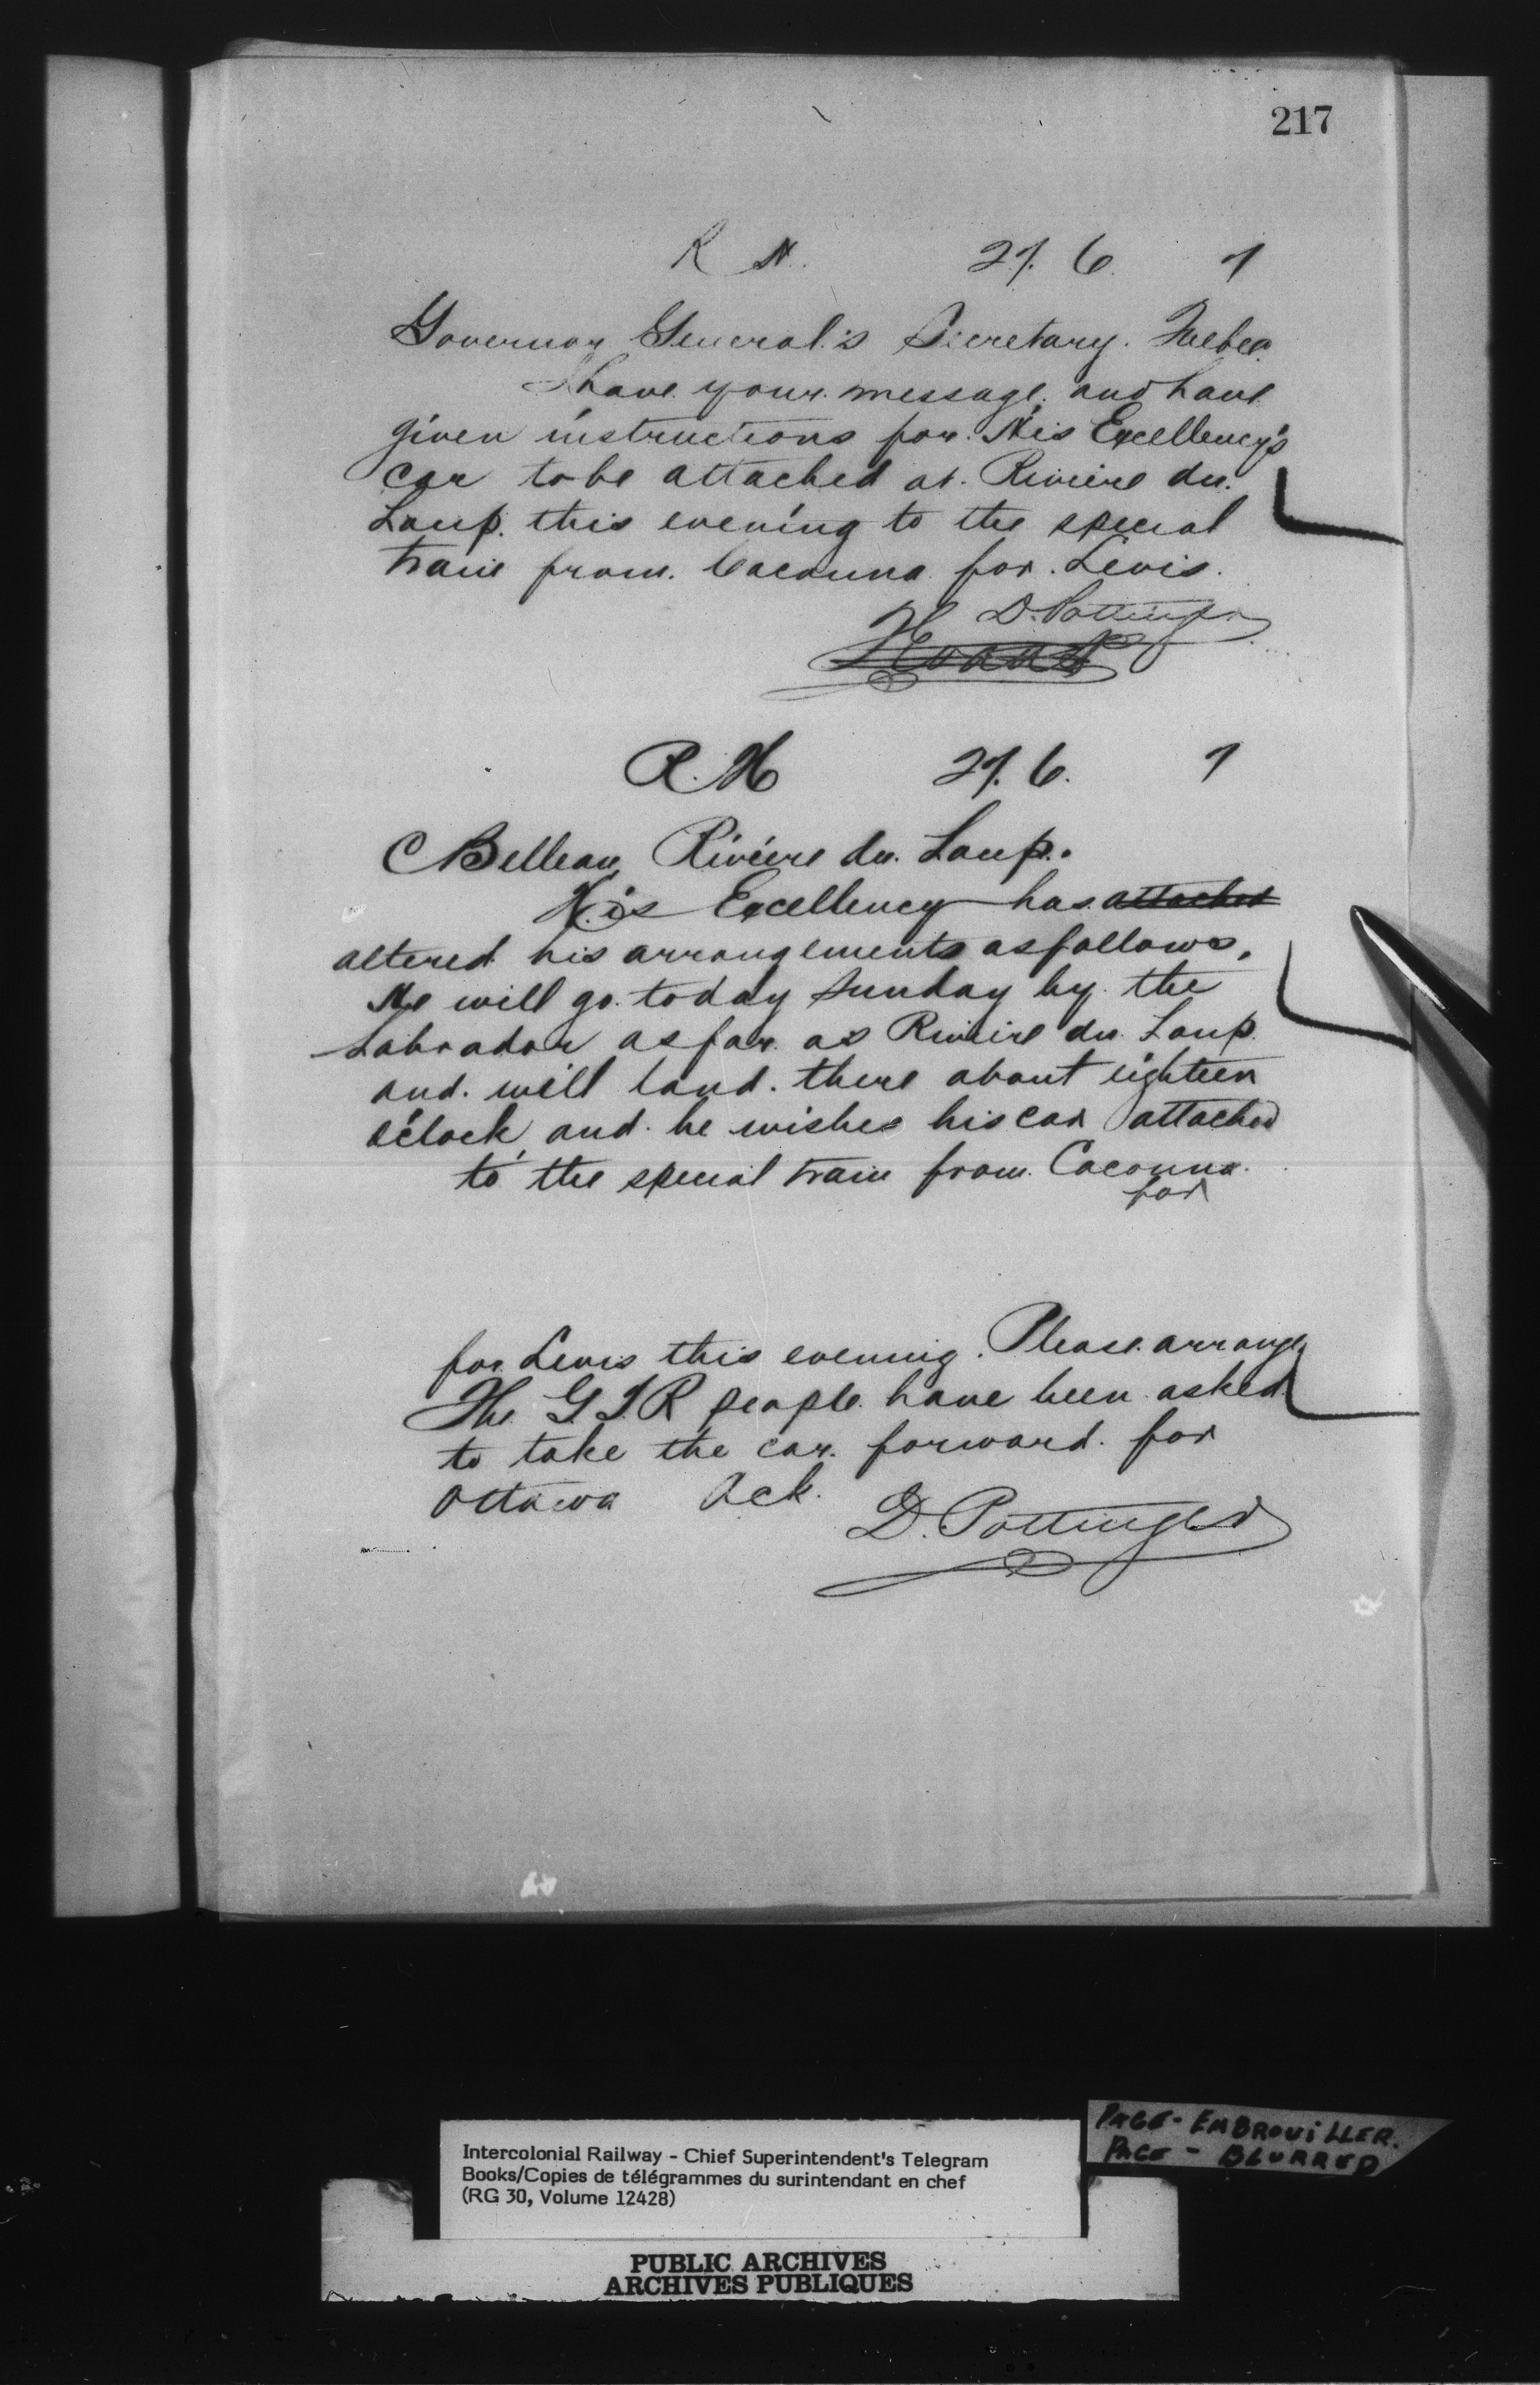 217
R H. 27. 6. 7
Governor General's Secretary. Quebec
I have your message and have
given instructions for His Excellency's
car to be attached at Riviere du
Loup this evening to the special
train from Cacouna for Levis.
D. Pottinger
R. H 27. 6. 7
C Belleau, Riviere du Loup.
His Excellency has attached
altered his arrangements as follows,
He will go today Sunday by the
Labrador as far as Riviere du Loup
and will land there about eighteen
o'clock and he wishes his car attached
to the special train from Cacouna
for
for Levis this evening. Please arrange
The G.T.R people have been asked
to take the car forward for
Ottawa Ack.
D. Pottinger
Intercolonial Railway - Chief Superintendent's Telegram
Books/Copies de télégrammes du surintendant en chef
(RG 30, Volume 12428)
PAGE - EMBROUILLER.
PAGE - BLURRED
PUBLIC ARCHIVES
ARCHIVES PUBLIQUES